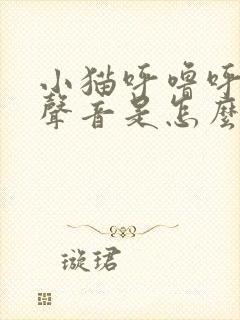 小猫呼噜呼
聲音是怎麼
璇珺